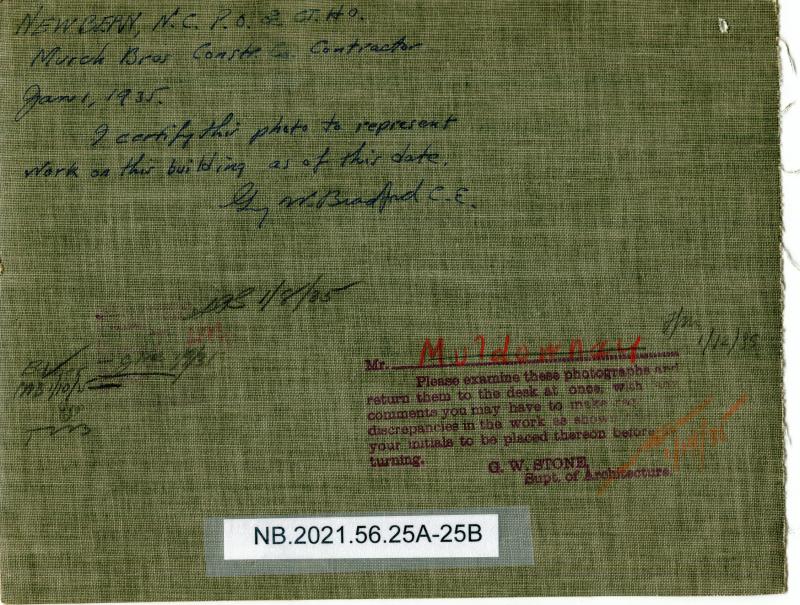 NEW BERN, N.C. P.O. & CT. HO.
Murch Bros Constr. Co. Contractor
Jan 1, 1935.
I certify this photo to represent
work on this building as of this date.
Guy W. Bradford C.E.
1/8/35
1/12/35
Mr. Muldownay
Please examine these photographs and
return them to the desk at once, with any
comments you may have to make
discrepancies in the work as
your initials to be placed thereon before
turning.
G. W. STONE,
Supt. of Architecture.
NB.2021.56.25A-25B